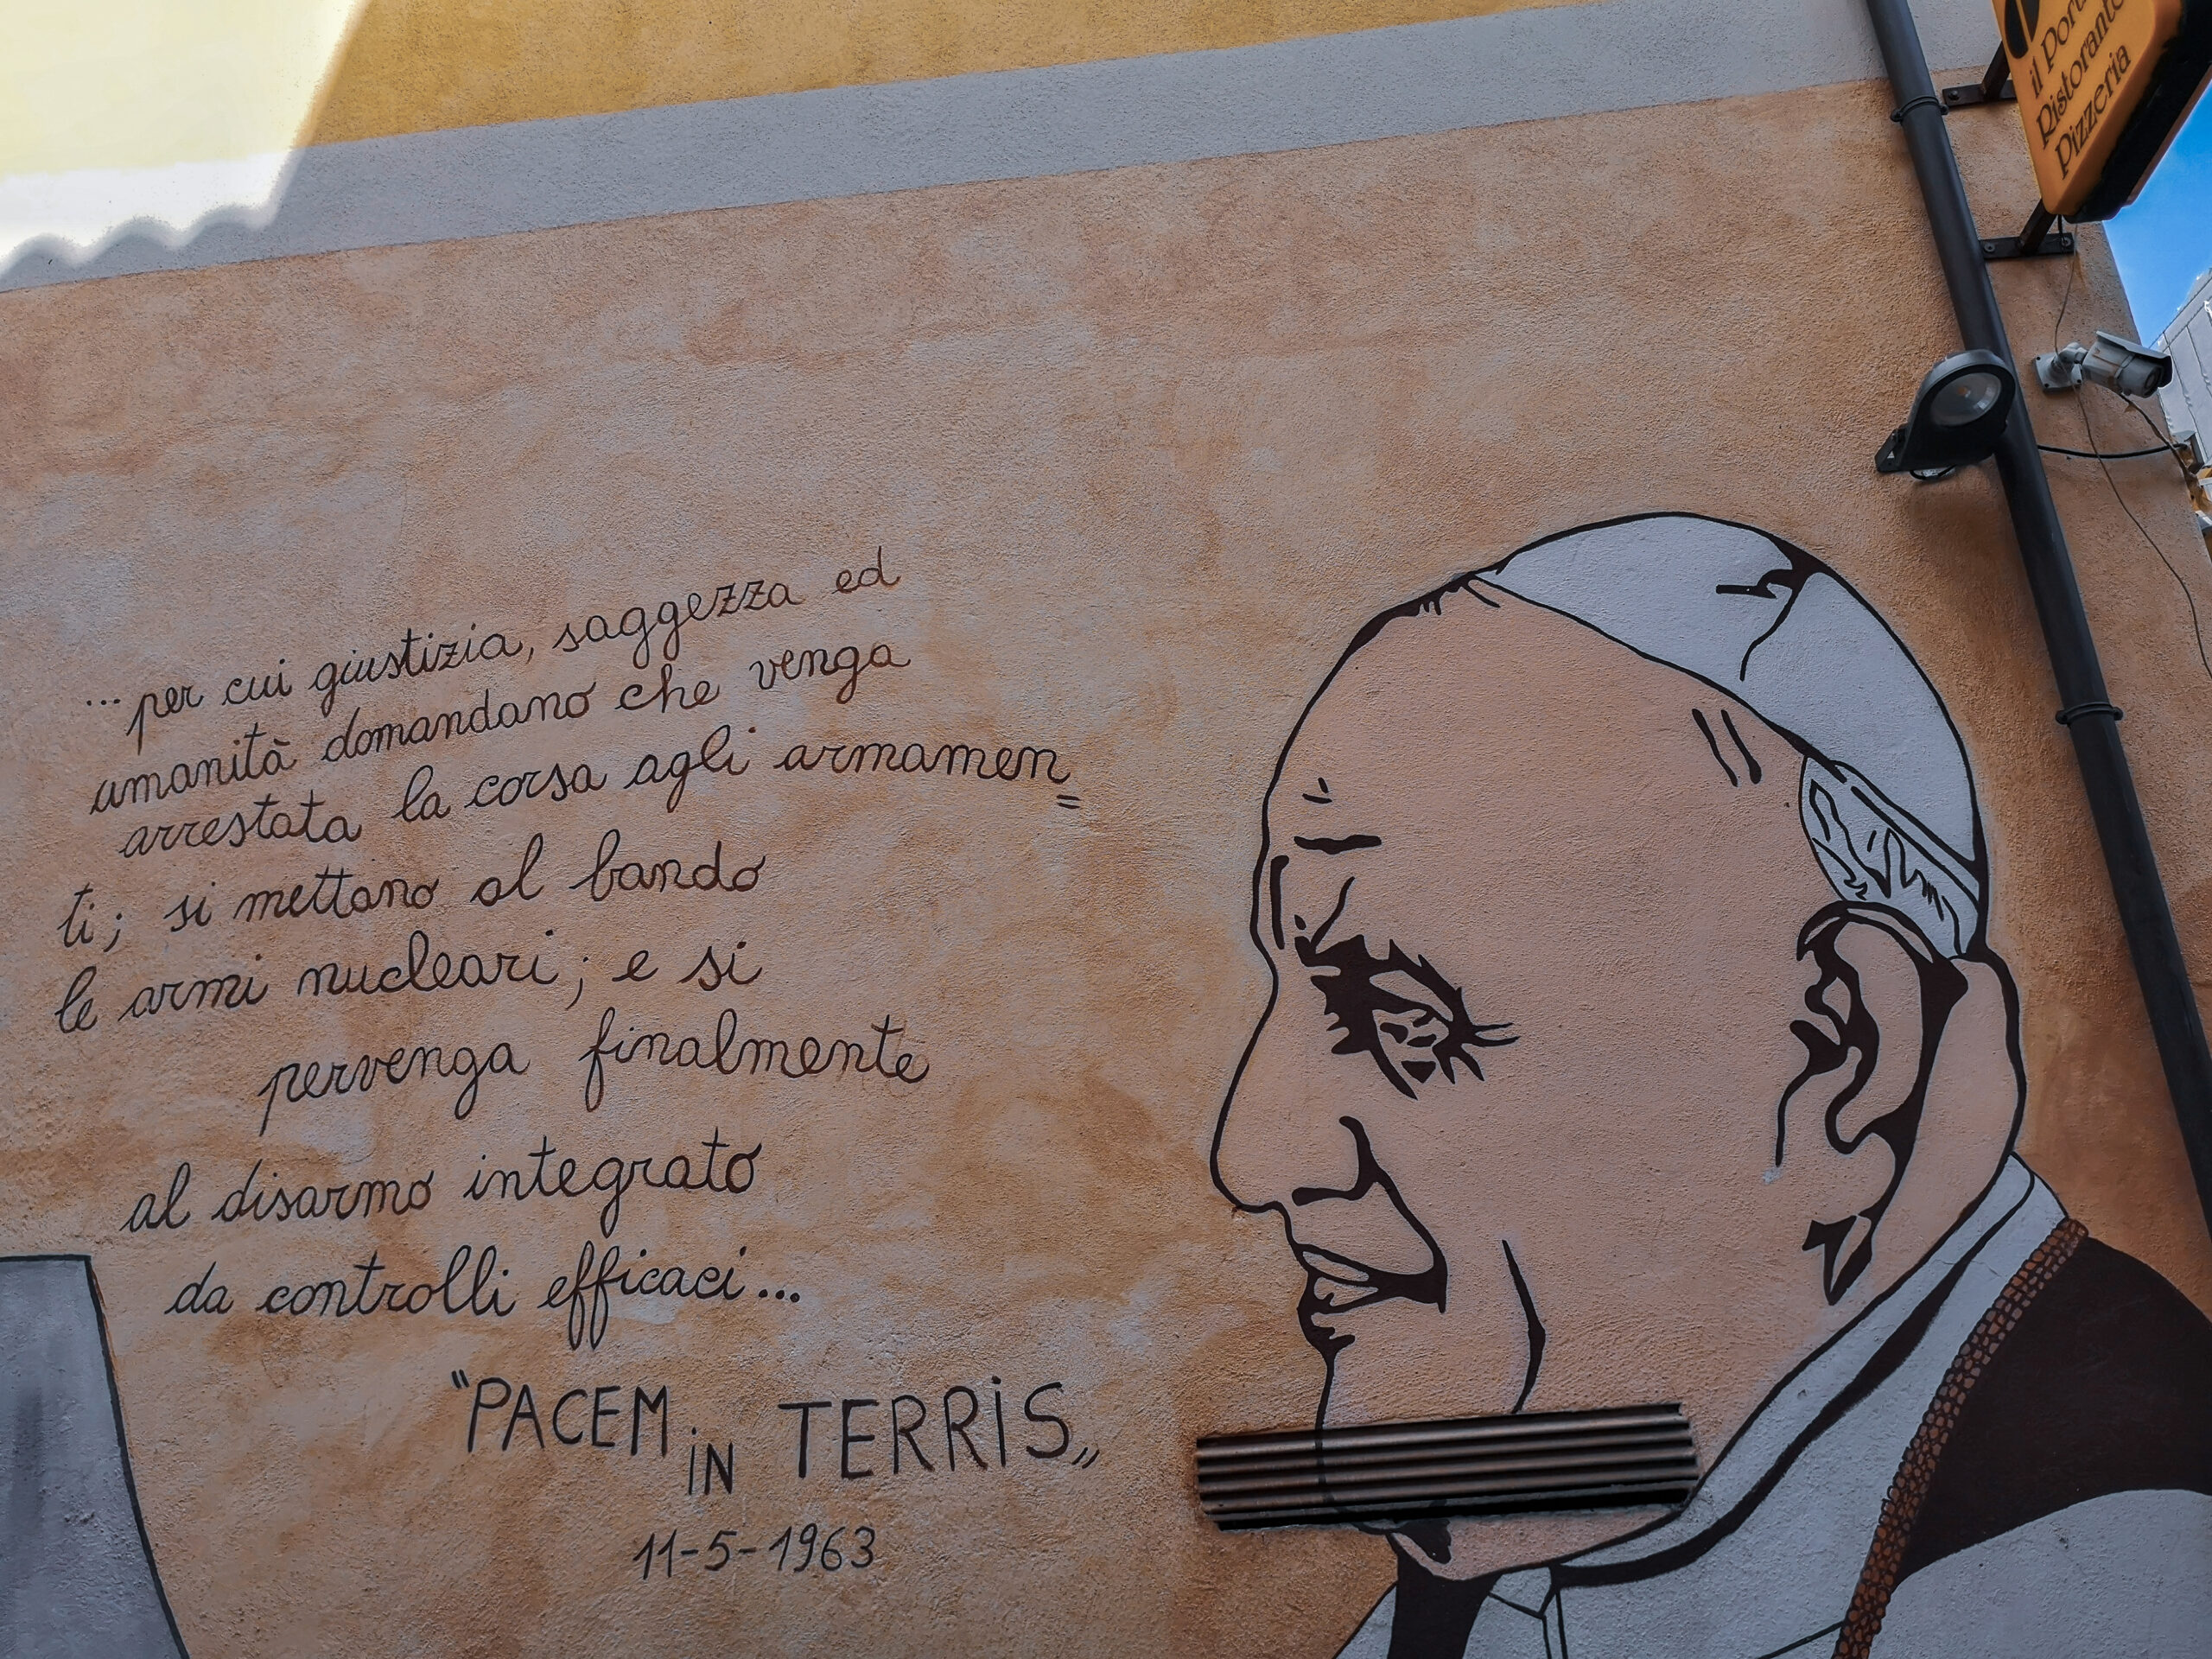 il
Ristorante
Pizzeria
... per cui giustizia, saggezza ed
umanità domandano che venga
arrestata la corsa agli armamen
=
ti; si mettano al bando
le armi nucleari; e si
pervenga finalmente
al disarmo integrato
da controlli efficaci...
"PACEM iN TERRiS„
11-5-1963